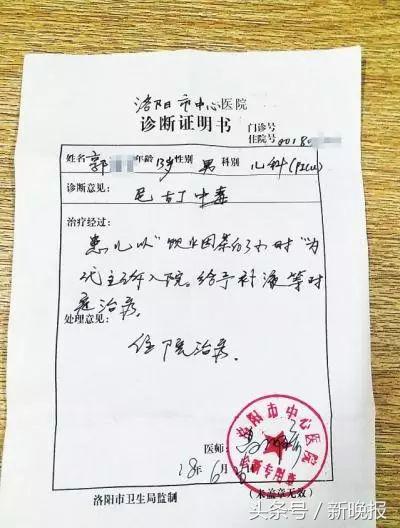 洛阳市中心医院
诊断证明书
门诊号
住院号 00180
姓名 郭 年龄 13岁 性别 男 科别 儿科(PICU)
诊断意见:
尼古丁中毒
治疗经过:
患儿以"饮业因茶约3小时"为
代主诉入院。给予补液等对
症治疗。
处理意见:
住院治疗。
医师:
18年6月
洛阳市中心医院
诊断专用章
洛阳市卫生局监制
(未盖章无效)
头条号/新晚报